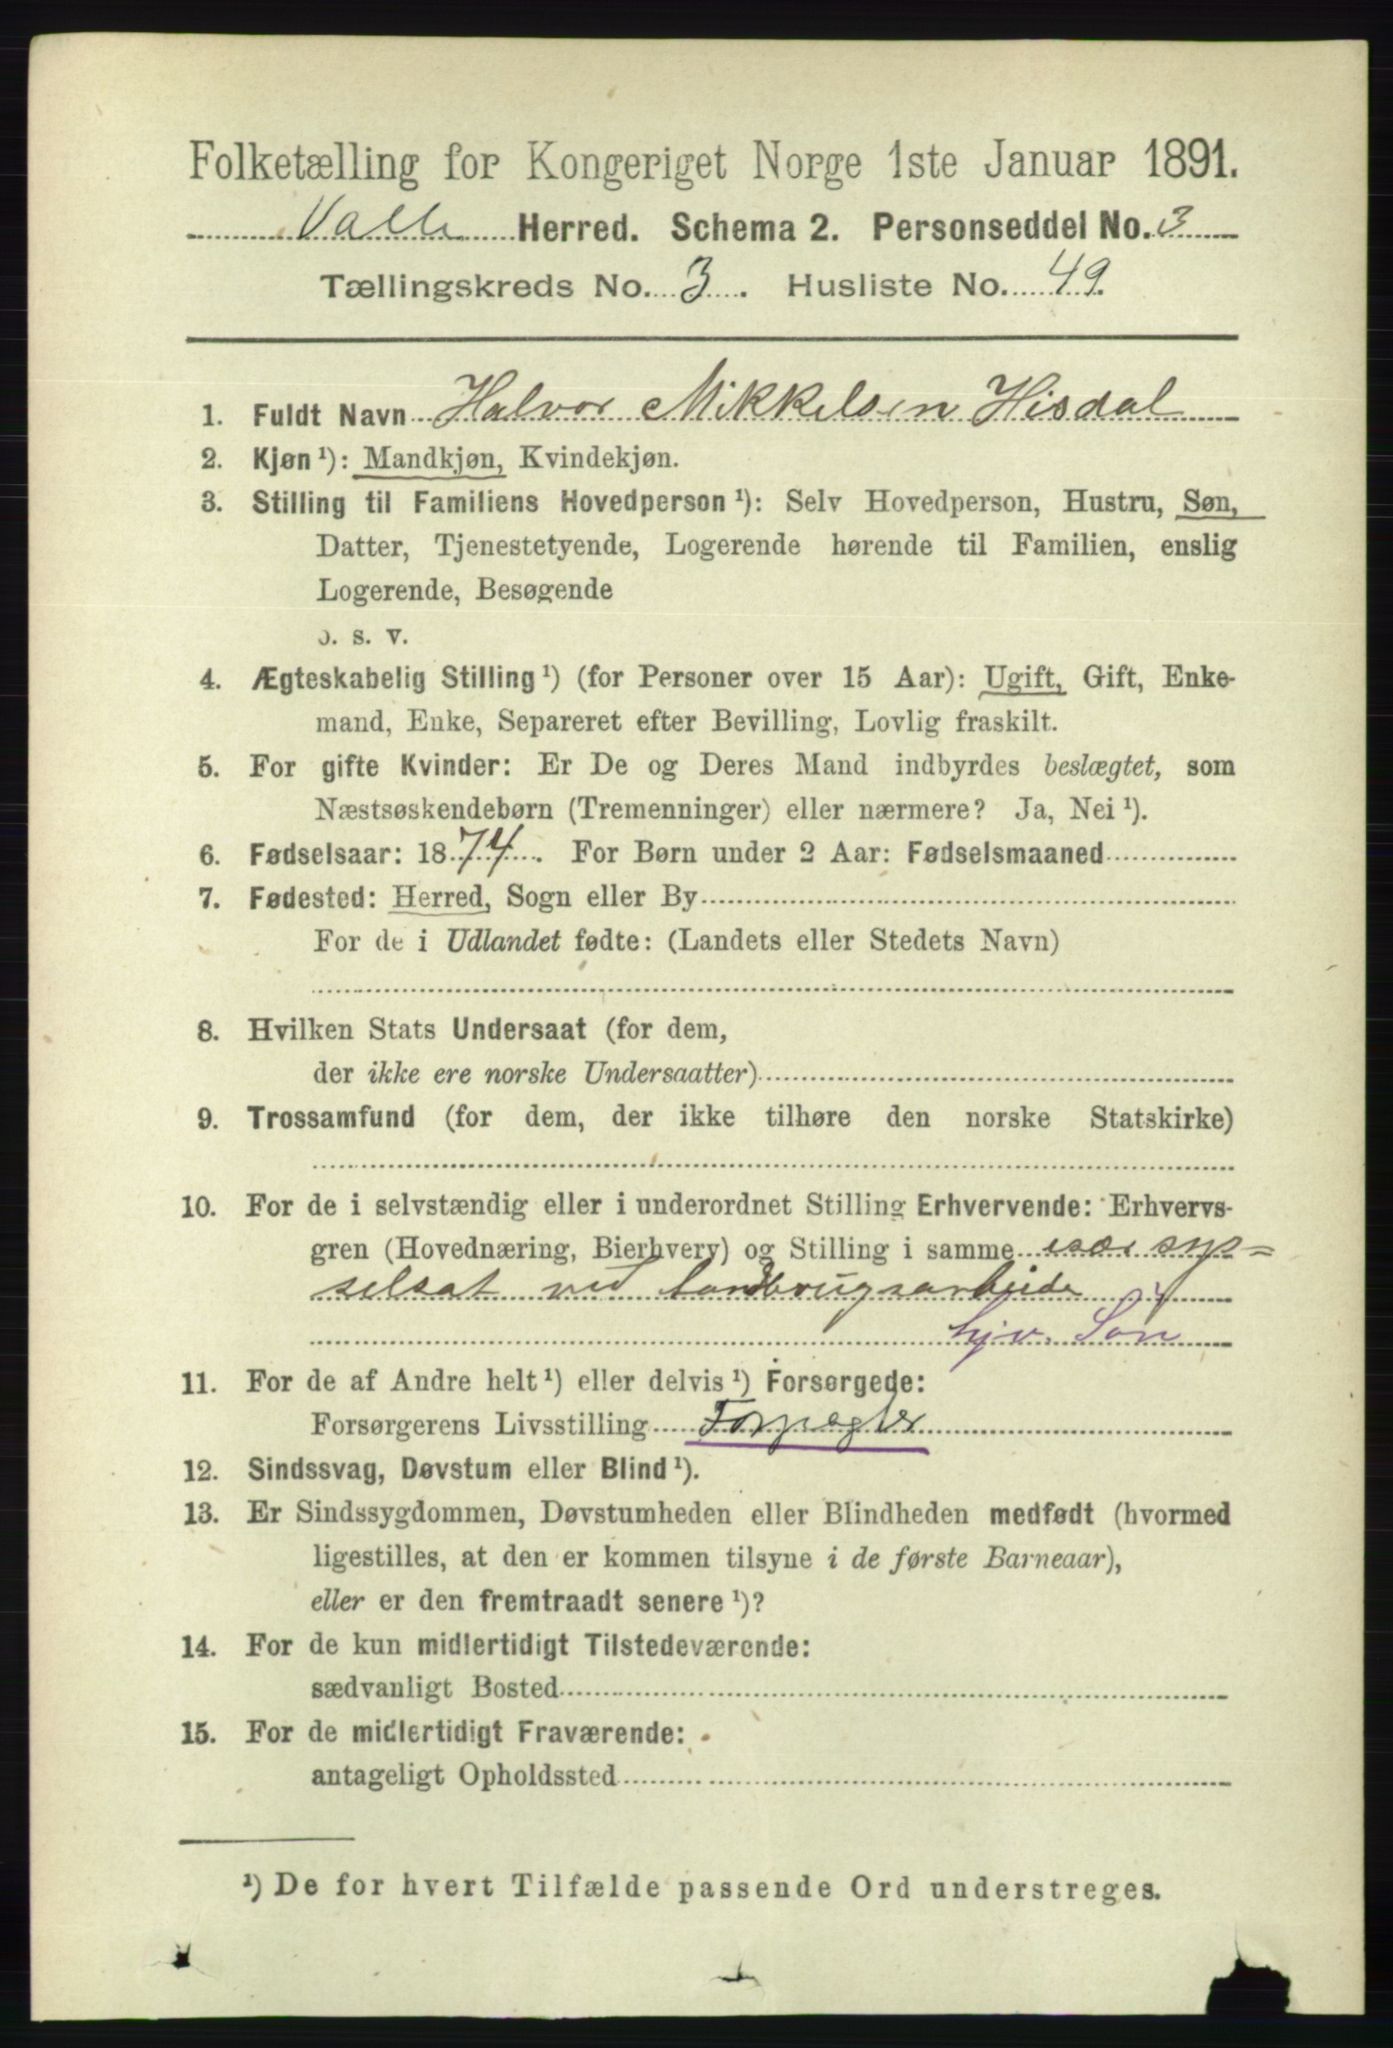 Folketælling for Kongeriget Norge 1ste Januar 1891.
Valle Herred. Schema 2. Personseddel No. 3
Tællingskreds No. 3. Husliste No. 49.
1. Fuldt Navn Halvor Mikkelsen Hisdal
2. Kjøn ¹): Mandkjøn, Kvindekjøn.
3. Stilling til Familiens Hovedperson ¹): Selv Hovedperson, Hustru, Søn,
Datter, Tjenestetyende, Logerende hørende til Familien, enslig
Logerende, Besøgende
o. s. v.
4. Ægteskabelig Stilling ¹) (for Personer over 15 Aar): Ugift, Gift, Enke-
mand, Enke, Separeret efter Bevilling, Lovlig fraskilt.
5. For gifte Kvinder: Er De og Deres Mand indbyrdes beslægtet, som
Næstsøskendebørn (Tremenninger) eller nærmere? Ja, Nei ¹).
6. Fødselsaar: 1874. For Børn under 2 Aar: Fødselsmaaned
7. Fødested: Herred, Sogn eller By
For de i Udlandet fødte: (Landets eller Stedets Navn)
8. Hvilken Stats Undersaat (for dem,
der ikke ere norske Undersaatter)
9. Trossamfund (for dem, der ikke tilhøre den norske Statskirke)
10. For de i selvstændig eller i underordnet Stilling Erhvervende: Erhvervs-
gren (Hovednæring, Bierhverv) og Stilling i samme især sys=
selsat ved landbrugsarbeide
hjv. Søn
11. For de af Andre helt ¹) eller delvis ¹) Forsørgede:
Forsørgerens Livsstilling Forpagter
12. Sindssvag, Døvstum eller Blind ¹).
13. Er Sindssygdommen, Døvstumheden eller Blindheden medfødt (hvormed
ligestilles, at den er kommen tilsyne i de første Barneaar),
eller er den fremtraadt senere ¹)?
14. For de kun midlertidigt Tilstedeværende:
sædvanligt Bosted
15. For de midlertidigt Fraværende:
antageligt Opholdssted
¹) De for hvert Tilfælde passende Ord understreges.